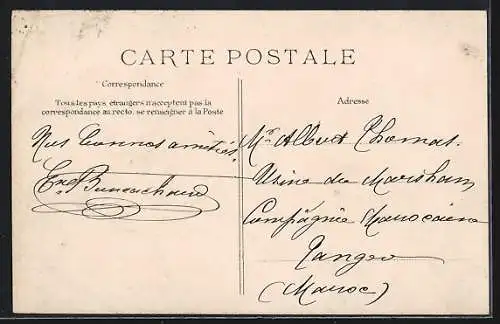 CARTE POSTALE
Correspondance
Tous les pays étrangers n'acceptent pas la
correspondance au recto, se renseigner à la Poste
Nos bonnes amitiés.
Adresse
Mr. Albert Thomas.
Usine du
Compagnie Marocaine
Tanger
(Maroc)